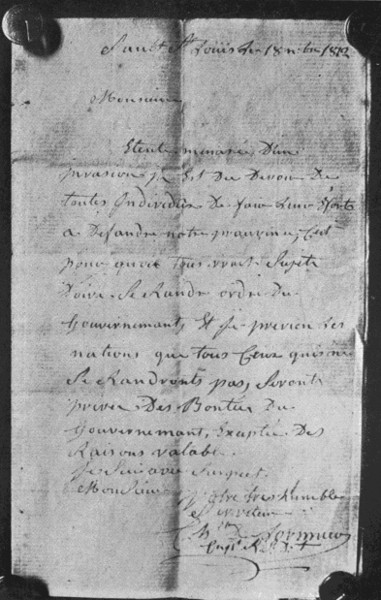 Sault St Louis Le 18 nbre 1812
Monsieur
Etente menasée D'un
invasion je Est Du Devoir De
toutes Individue De faire Leur Efforts
a Defandre notre prauvince, C'est
pour quoit tous vrais Sujets
Doive Se Randre ordre Du
Gouvernement, Et je previen Les
nations que tous Ceux qui ne
Se Randronts pas, Seronts
privée Des Bontée Du
Gouvernement, Exceptée Des
Raisons valabe.
Je Suis avec Respect
Monsieur
Votre tres humble
Serviteur